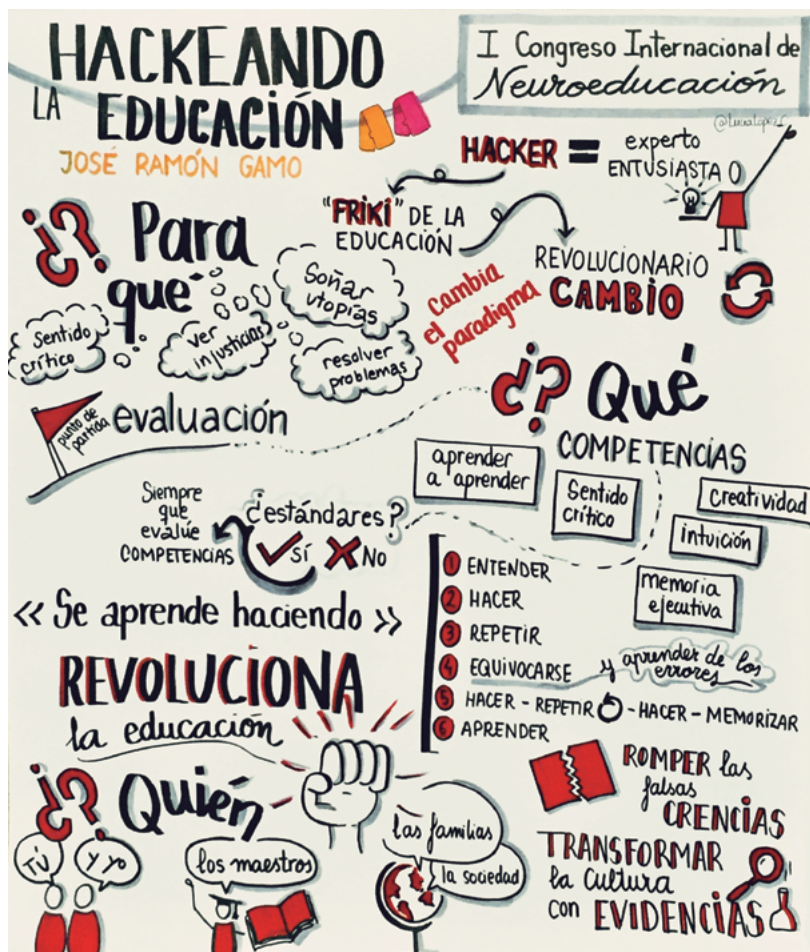 HACKEANDO
LA EDUCACIÓN
JOSÉ RAMÓN GAMO
I Congreso Internacional de
Neuroeducación
@LuciaLopez_C
HACKER = experto
ENTUSIASTA
"FRIKI" DE LA
EDUCACIÓN
REVOLUCIONARIO
CAMBIO
cambia
el
paradigma
¿? Para
qué
Sentido
crítico
ver
injusticias
Soñar
utopías
resolver
problemas
punto de
partida
evaluación
¿? Qué
COMPETENCIAS
aprender
a aprender
Sentido
crítico
Creatividad
intuición
memoria
ejecutiva
Siempre
que
evalúe
COMPETENCIAS
¿estándares?
SÍ NO
<< Se aprende haciendo >>
1 ENTENDER
2 HACER
3 REPETIR
4 EQUIVOCARSE y aprender de los
errores
5 HACER - REPETIR - HACER - MEMORIZAR
6 APRENDER
REVOLUCIONA
la educación
¿? Quién
Tú
y yo
los maestros
las familias
la sociedad
ROMPER las
falsas
CRENCIAS
TRANSFORMAR
la cultura
con EVIDENCIAS